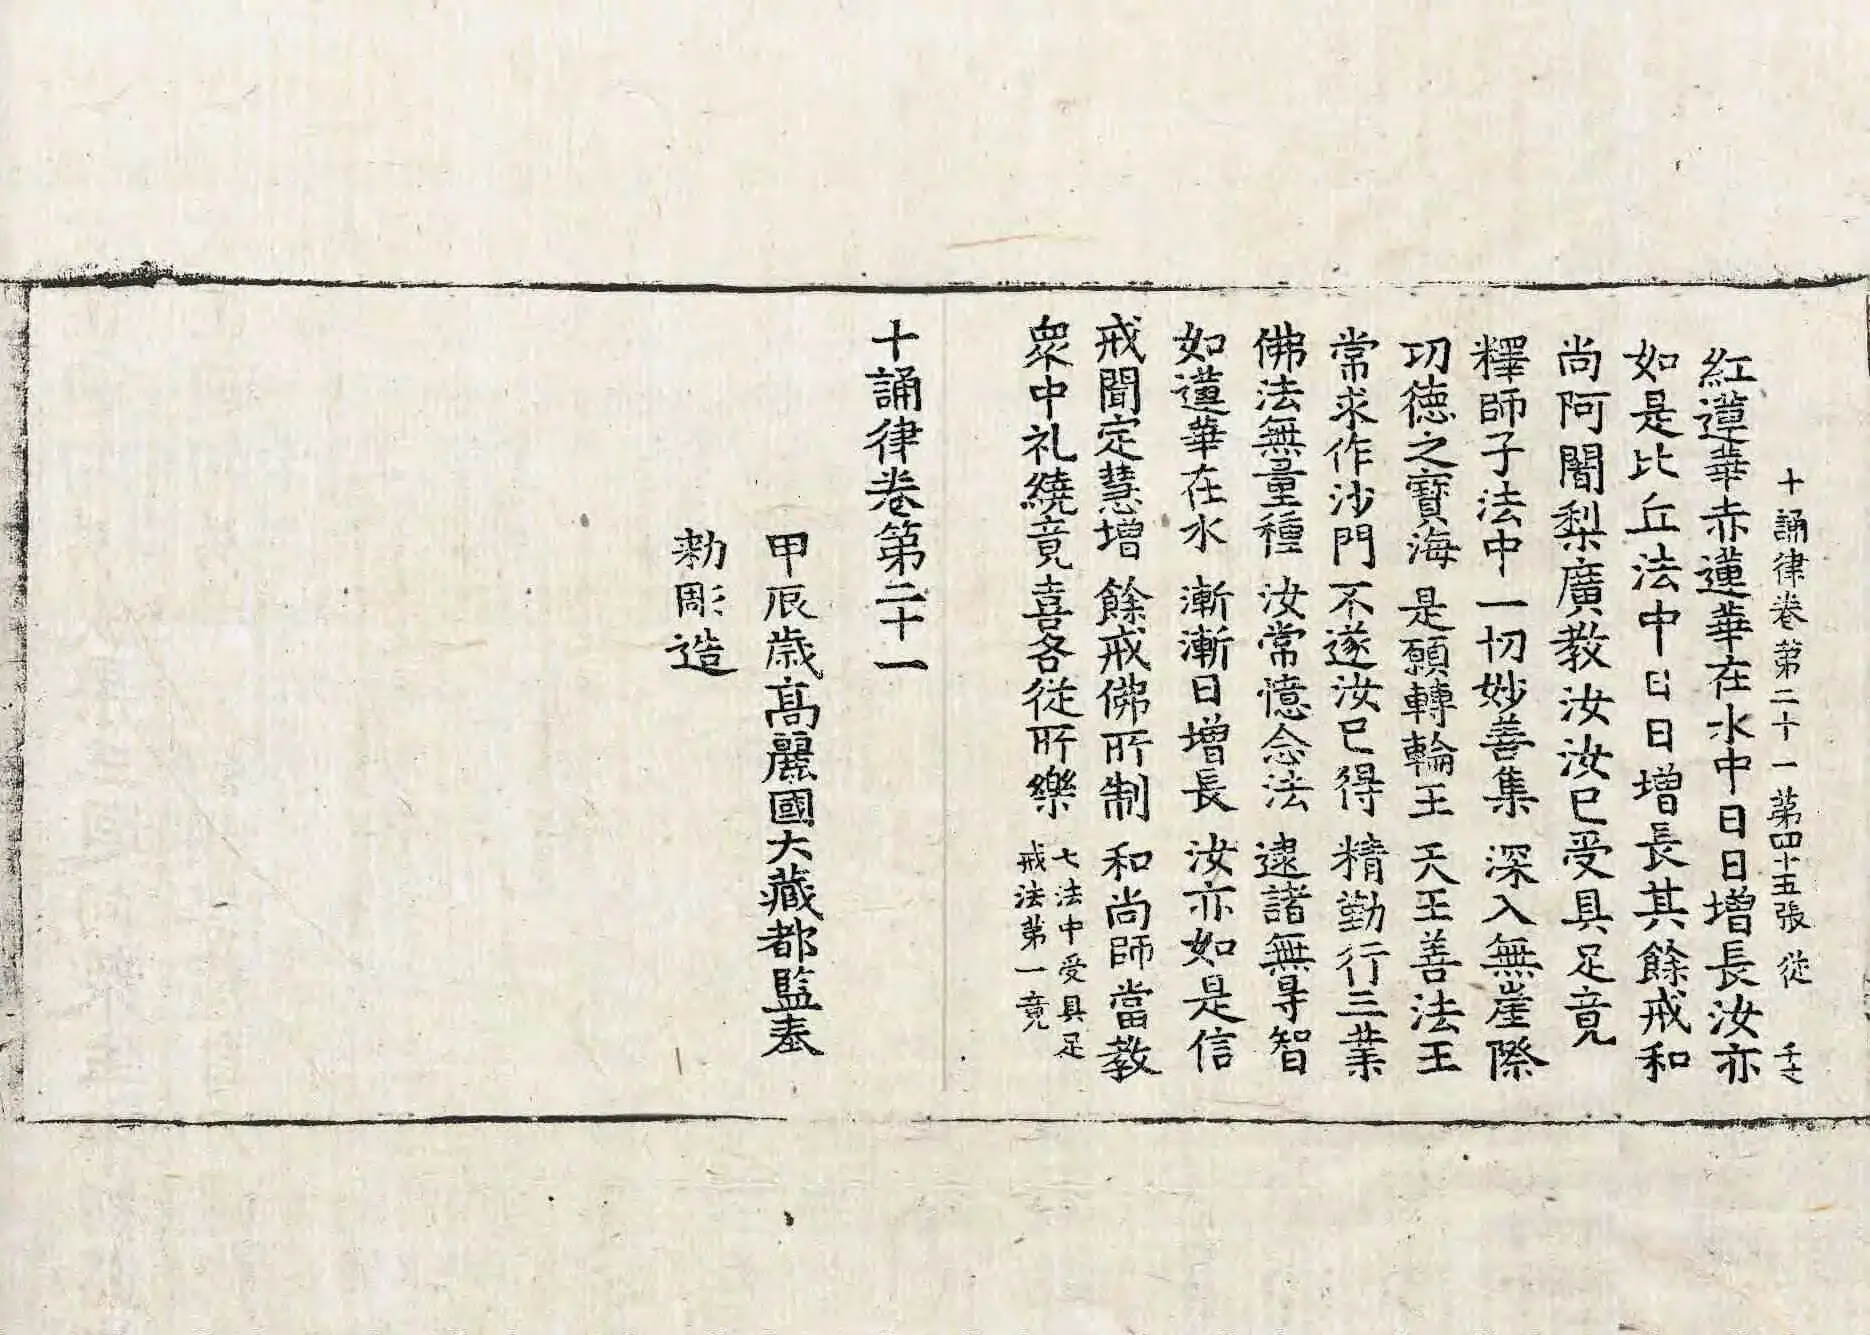 十誦律卷第二十一 第四十五張 從
紅蓮華赤蓮華在水中日日增長汝亦
如是比丘法中日日增長其餘戒和
尚阿闍梨廣教汝汝已受具足竟
釋師子法中 一切妙善集 深入無崖際
功德之寶海 是願轉輪王 天王善法王
常求作沙門 不遂汝已得 精勤行三業
佛法無量種 汝常憶念法 逮諸無㝵智
如蓮華在水 漸漸日增長 汝亦如是信
戒聞定慧增 餘戒佛所制 和尚師當教
眾中礼繞竟喜各從所樂 七法中受具足
戒法第一竟
十誦律卷第二十一
甲辰歲高麗國大藏都監奉
勑彫造